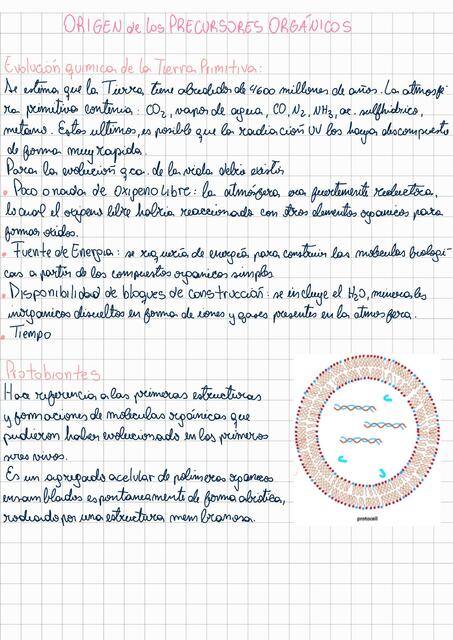 ORIGEN de los PRECURSORES ORGÁNICOS
Evolución química de la Tierra Primitiva:
Se estima que la Tierra, tiene alrededor de 4600 millones de años. La atmosfe-
ra primitiva contenia: CO2, vapor de agua, CO, N2, NH3, ac. sulfhídrico,
metano. Estos ultimos, es posible que la radiación UV los haya descompuesto
de forma muy rapida.
Para la evolución qca. de la vida debio existir
• Poco o nada de Oxigeno Libre: la atmósfera era fuertemente reductora,
lo cual el oxigeno libre habria reaccionado con otros elementos organicos para
formar oxidos.
• Fuente de Energia: se requeria de energía para construir las moleculas biologi-
cas a partir de los compuestos organicos simples
• Disponibilidad de bloques de construcción: se incluye el H2O, minerales
inorganicos disueltos en forma de iones y gases presentes en la atmosfera.
• Tiempo
Protobiontes
Hace referencia a las primeras estructuras
y formaciones de moleculas orgánicas que
pudieron haber evolucionado en los primeros
seres vivos.
Es un agregado acelular de polimeros organicos
ensamblados espontaneamente de forma abiotica,
rodeado por una estructura membranosa.
protocell